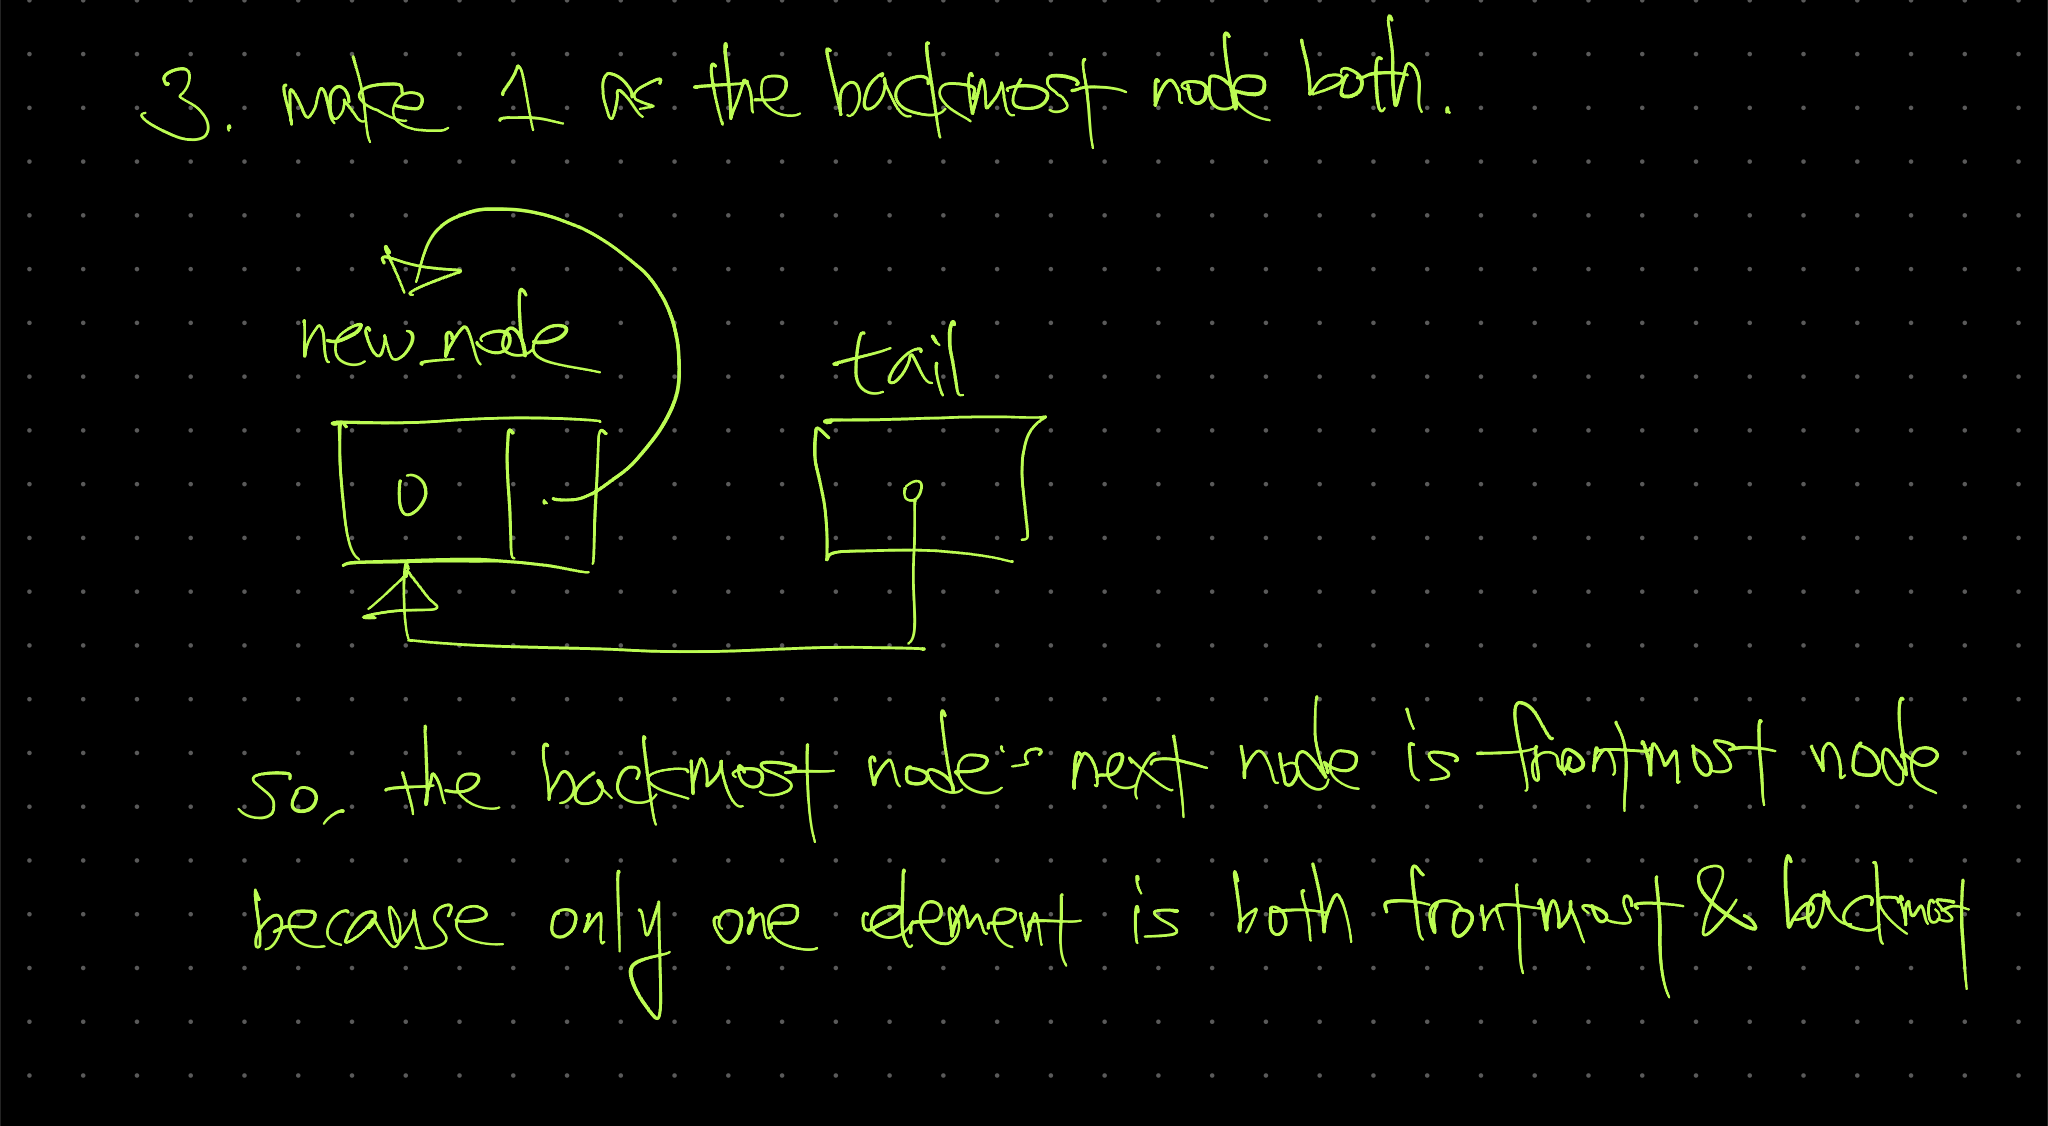 3. make 1 as the backmost node both.
new_node
tail
0
so, the backmost node's next node is frontmost node
because only one element is both frontmost & backmost